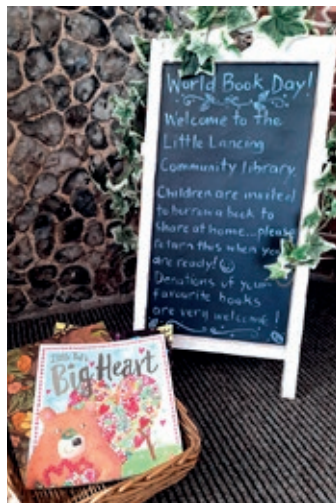 World Book Day!
Welcome to the
Little Lancing
Community library
Children are invited
to borrow a book to
share at home...please
return this when you
are ready!
Donations of your
favourite books
are very welcome!
Little Ted's
Big Heart